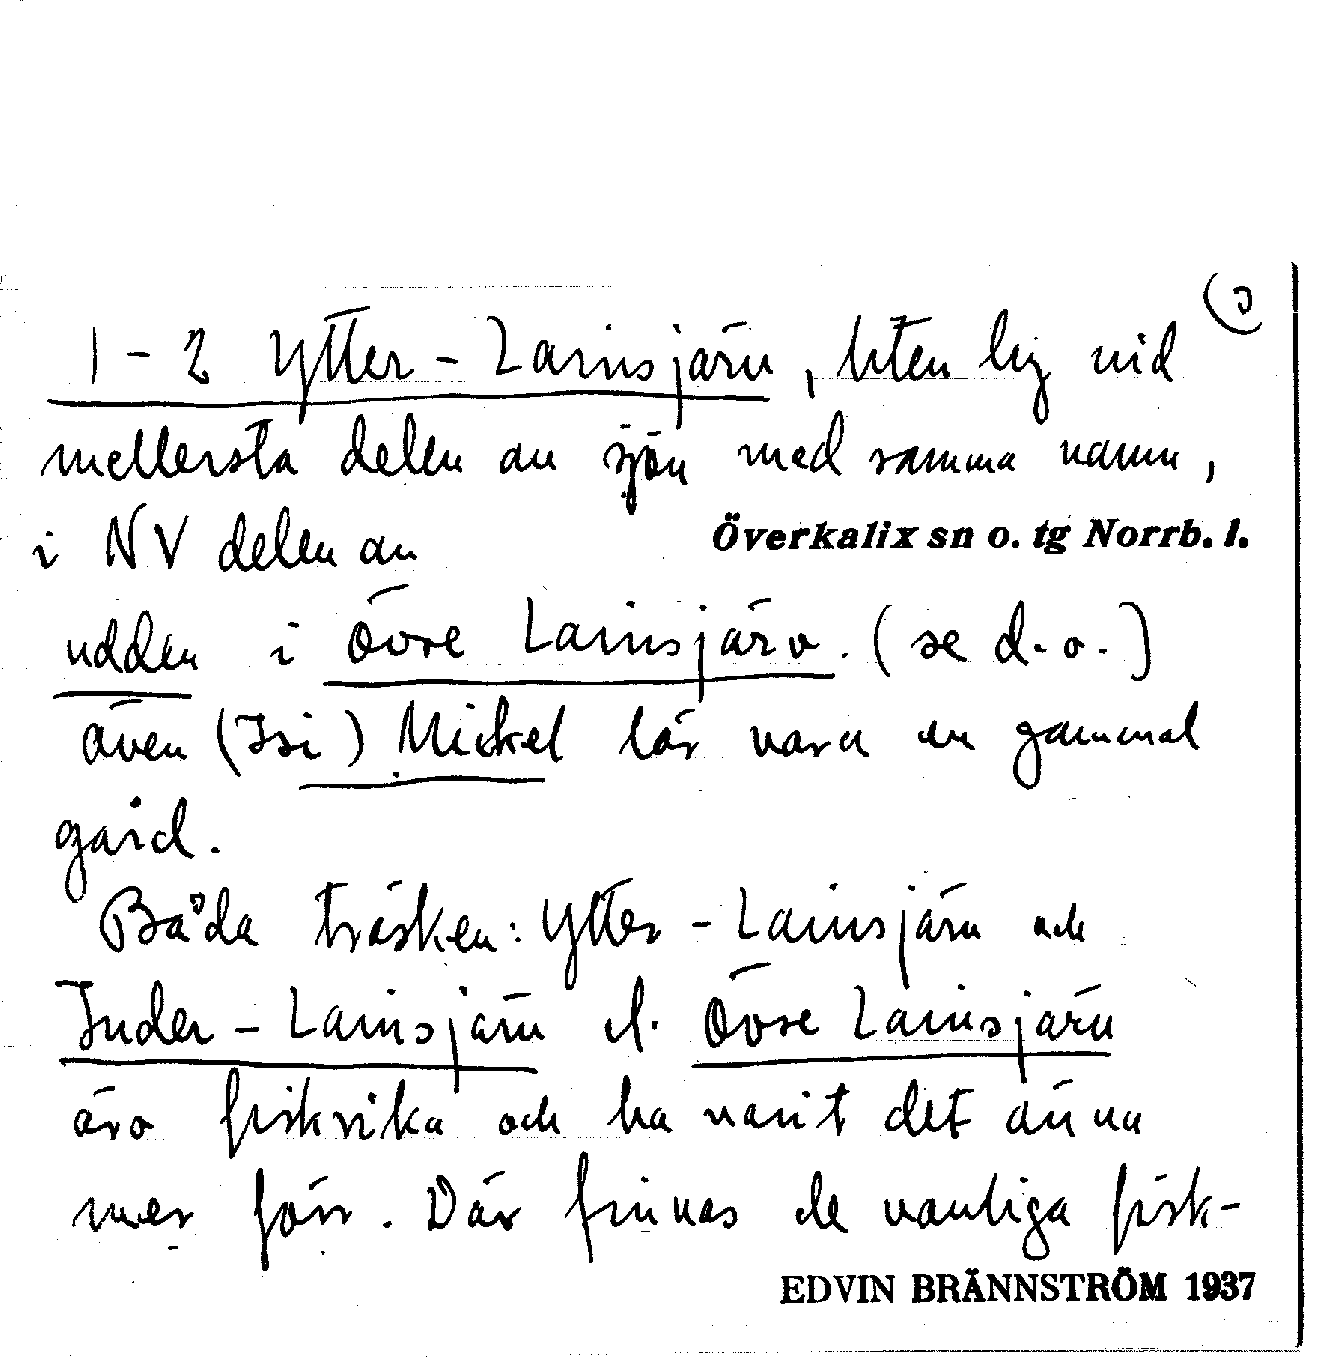 3
1-2 Ytter-Lainsjärv, liten by vid
mellersta delen av sjön med samma namn,
i NV delen av
Överkalix sn o. tg Norrb. l.
udden i Övre Lainsjärv. (se d.o.)
även (Isi) Mickel lär vara en gammal
gård.
Båda träsken: Ytter-Lainsjärv och
Inder-Lainsjärv el. Övre Lainsjärv
äro fiskrika och ha varit det ännu
mer förr. Där finnas de vanliga fisk-
EDVIN BRÄNNSTRÖM 1937